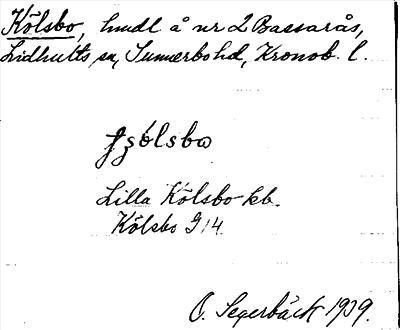 Kölsbo, hmdl å nr 2 Bassarås,
Lidhults sn, Sunnerbo hd, Kronob. l.
Lilla Kölsbo kb.
Kölsbo G 14
O. Segerbäck 1939.